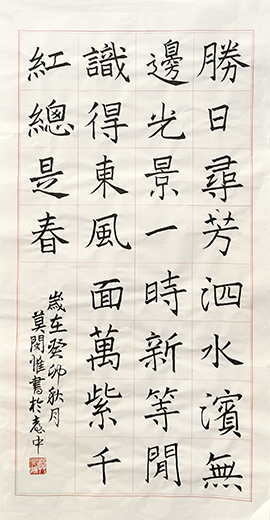 勝日尋芳泗水濱無
邊光景一時新等閒
識得東風面萬紫千
紅總是春
歲在癸卯秋月
莫閔惟書於